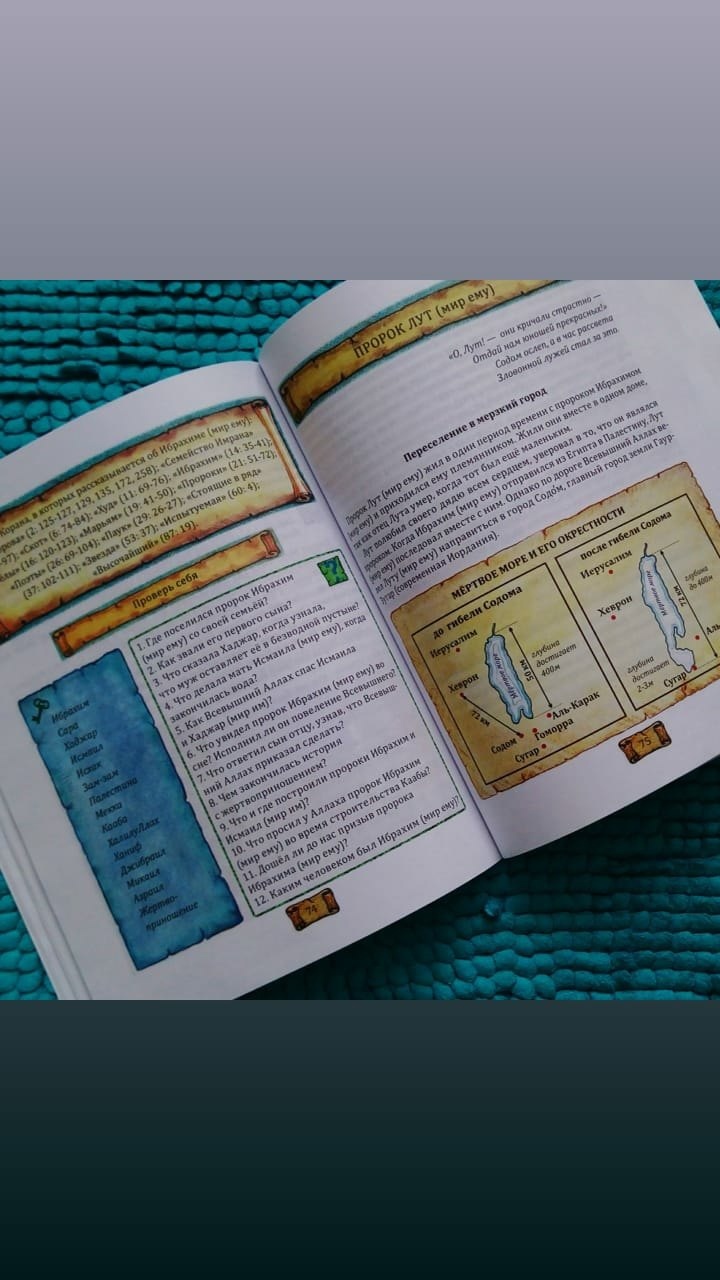 Корана, в которых рассказывается об Ибрахиме (мир ему):
(2: 125-127, 129, 135, 172, 258); «Семейство Имрана»
«Скот» (6: 74-84); «Худ» (11: 69-76); «Ибрахим» (14: 35-41);
(16: 120-123); «Марьям» (19: 41-50); «Пророки» (21: 51-72);
«Поэты» (26: 69-104); «Паук» (29: 26-27); «Стоящие в ряд»
(37: 102-111); «Звезда» (53: 37); «Испытуемая» (60: 4);
«Высочайший» (87: 19).
Проверь себя
Ибрахим
Сара
Хаджар
Исмаил
Исхак
Зам-зам
Палестина
Мекка
Кааба
ХалилуЛлах
Ханиф
Джибраил
Микаил
Азраил
Жертво-
приношение
1. Где поселился пророк Ибрахим
(мир ему) со своей семьёй?
2. Как звали его первого сына?
3. Что сказала Хаджар, когда узнала,
что муж оставляет её в безводной пустыне?
4. Что делала мать Исмаила (мир ему), когда
закончилась вода?
5. Как Всевышний Аллах спас Исмаила
и Хаджар (мир им)?
6. Что увидел пророк Ибрахим (мир ему) во
сне? Исполнил ли он повеление Всевышнего?
7. Что ответил сын отцу, узнав, что Всевыш-
ний Аллах приказал сделать?
8. Чем закончилась история
с жертвоприношением?
9. Что и где построили пророки Ибрахим и
Исмаил (мир им)?
10. Что просил у Аллаха пророк Ибрахим
(мир ему) во время строительства Каабы?
11. Дошёл ли до нас призыв пророка
Ибрахима (мир ему)?
12. Каким человеком был Ибрахим (мир ему)?
74
ПРОРОК ЛУТ (мир ему)
«О, Лут! — они кричали страстно —
Отдай нам юношей прекрасных!»
Содом ослеп, а в час рассвета
Зловонной лужей стал за это.
Переселение в мерзкий город
Пророк Лут (мир ему) жил в один период времени с пророком Ибрахимом
(мир ему) и приходился ему племянником. Жили они вместе в одном доме,
так как отец Лута умер, когда тот был ещё маленьким.
Лут полюбил своего дядю всем сердцем, уверовал в то, что он являлся
пророком. Когда Ибрахим (мир ему) отправился из Египта в Палестину, Лут
(мир ему) последовал вместе с ним. Однако по дороге Всевышний Аллах ве-
лел Луту (мир ему) направиться в город Содом, главный город земли Гаур-
Зугар (современная Иордания).
МЁРТВОЕ МОРЕ И ЕГО ОКРЕСТНОСТИ
до гибели Содома
Иерусалим
Хеврон
Мёртвое море
50 км
глубина
достигает
400м
72 км
Содом
Гоморра
Аль-Карак
Сугар
после гибели Содома
Иерусалим
Хеврон
Мёртвое море
72 км
глубина
до 400м
глубина
достигает
2-3м
Аль-
Сугар
75